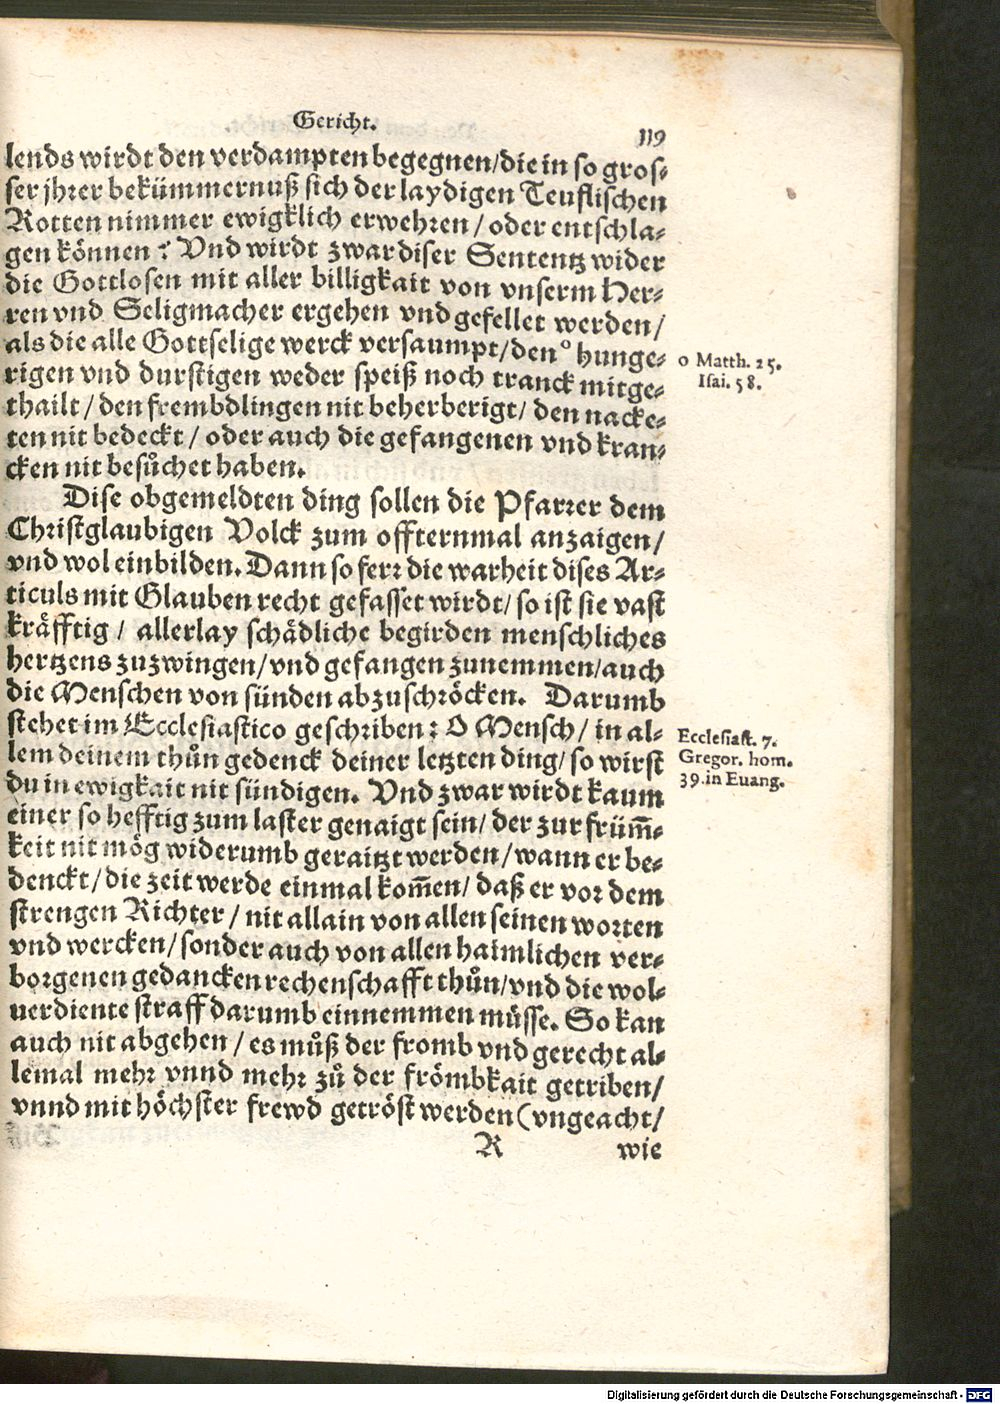 Gericht.
119
lends wirdt den verdampten begegnen/die in so gros⸗
ser jhrer bekümmernuß sich der laydigen Teuflischen
Rotten nimmer ewigklich erwehren / oder entschla⸗
gen können? Vnd wirdt zwar diser Sententz wider
die Gottlosen mit aller billigkait von vnserm Her⸗
ren vnd Seligmacher ergehen vnd gefellet werden/
als die alle Gottselige werck versaumpt/den o hunge⸗
rigen vnd durstigen weder speiß noch tranck mitge⸗
thailt / den frembdlingen nit beherberigt/ den nacke⸗
ten nit bedeckt / oder auch die gefangenen vnd kran⸗
cken nit besůchet haben.
o Matth. 25.
Isai. 58.
Dise obgemeldten ding sollen die Pfarrer dem
Christglaubigen Volck zum offternmal anzaigen/
vnd wol einbilden. Dann so ferr die warheit dises Ar⸗
ticuls mit Glauben recht gefasset wirdt/ so ist sie vast
kräfftig / allerlay schädliche begirden menschliches
hertzens zuzwingen/vnd gefangen zunemmen/auch
die Menschen von sünden abzuschröcken. Darumb
stehet im Ecclesiastico geschriben: O Mensch/ in al⸗
lem deinem thůn gedenck deiner letzten ding/ so wirst
du in ewigkait nit sündigen. Vnd zwar wirdt kaum
einer so hefftig zum laster genaigt sein/ der zur früm̃⸗
keit nit mög widerumb geraitzt werden/wann er be⸗
denckt/ die zeit werde einmal kom̃en/ daß er vor dem
strengen Richter / nit allain von allen seinen worten
vnd wercken/ sonder auch von allen haimlichen ver⸗
borgenen gedancken rechenschafft thůn/vnd die wol⸗
uerdiente straff darumb einnemmen müsse. So kan
auch nit abgehen / es můß der fromb vnd gerecht al⸗
lemal mehr vnnd mehr zů der frömbkait getriben/
vnnd mit höchster frewd getröst werden (vngeacht/
Ecclesiast. 7.
Gregor. hom.
39. in Euang.
R
wie
Digitalisierung gefördert durch die Deutsche Forschungsgemeinschaft - DFG